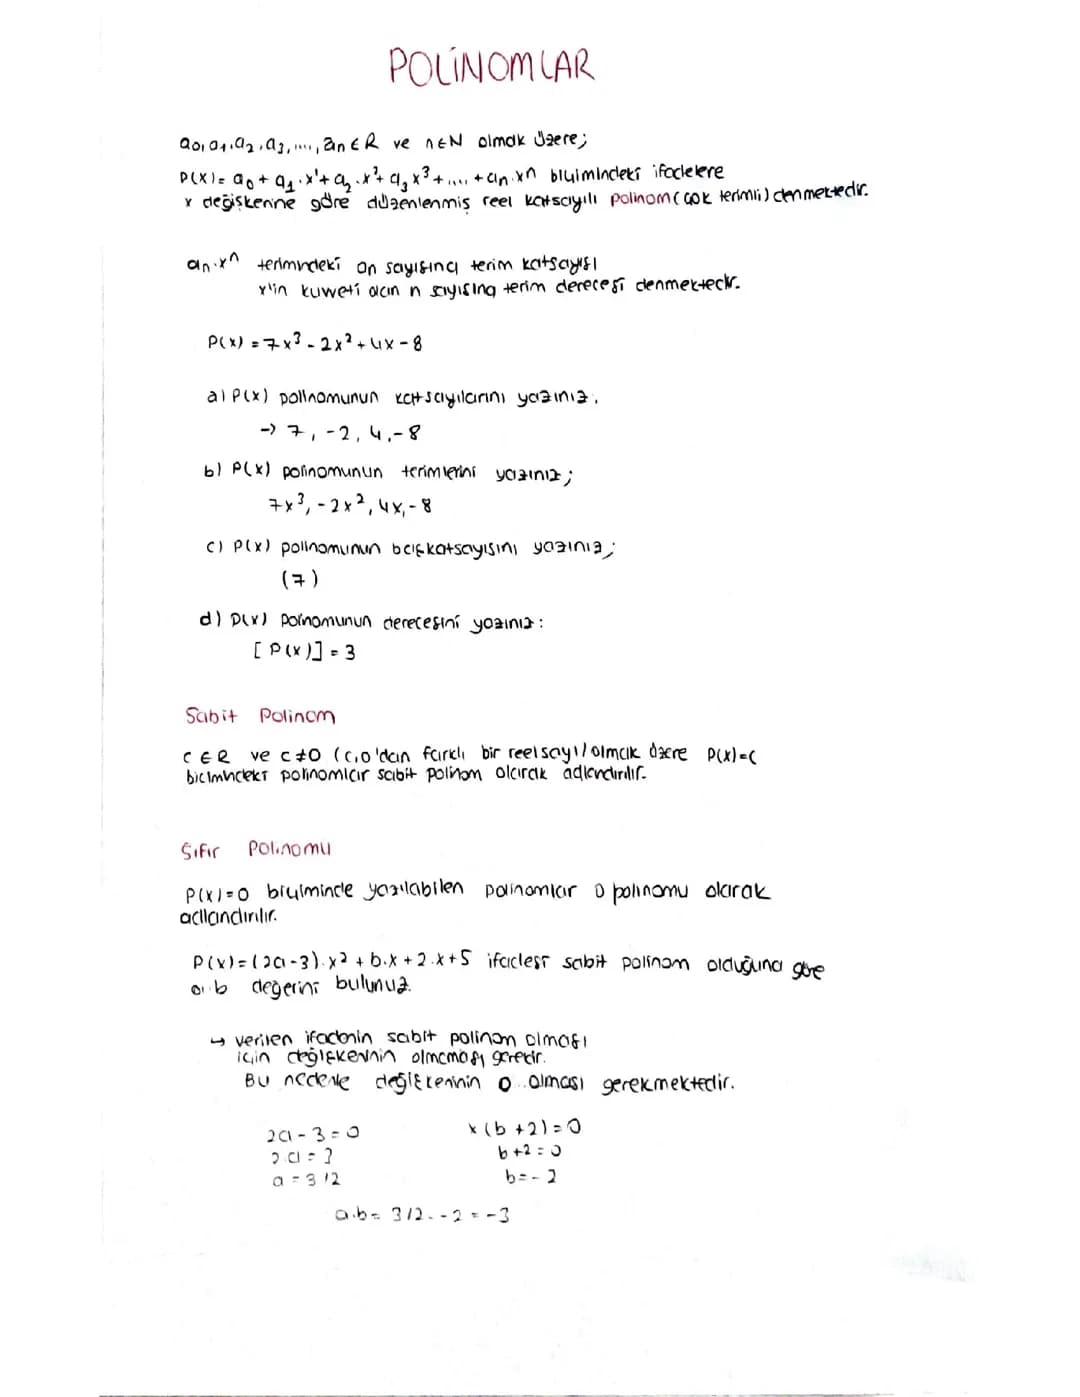 POLİNOMLAR
a0, a1, a2, a3, ...., an ∈ R ve n∈N olmak üzere;
P(x) = a0 + a1.x¹ + a2.x² + a3x³ + .... + an.xn biçimindeki ifadelere
x değişkenine göre düzenlenmiş reel katsayılı polinom (çok terimli) denmektedir.
an.xn terimindeki an sayısına terim katsayısı
x'in kuvveti olan n sayısına terim derecesi denmektedir.
P(x) = 7x³ - 2x² + 4x - 8
a) P(x) polinomunun katsayılarını yazınız.
→ 7, -2, 4, -8
b) P(x) polinomunun terimlerini yazınız;
7x³, -2x², 4x, -8
c) P(x) polinomunun başkatsayısını yazınız;
(7)
d) P(x) polnomunun derecesini yazınız:
[P(x)] = 3
Sabit Polinom
c ∈ R ve c≠0 (c, 0'dan farklı bir reel sayı) olmak üzere P(x)=c
bicimindeki polinomlar sabit polinom olarak adlandırılır.
Sıfır Polinomu
P(x)=0 biçiminde yazılabilen polinomlar 0 polinomu olarak
adlandırılır.
P(x) = (2a-3).x² + b.x + 2.x + 5 ifadesi sabit polinom olduğuna göre
a.b değerini bulunuz.
↪ verilen ifadenin sabit polinom olması
için değişkenin olmaması gerekir.
Bu nedenle değişkeninin 0 olması gerekmektedir.
2a - 3 = 0 x(b+2) = 0
2a = 3 b+2 = 0
a = 3/2 b = -2
a.b = 3/2 . -2 = -3